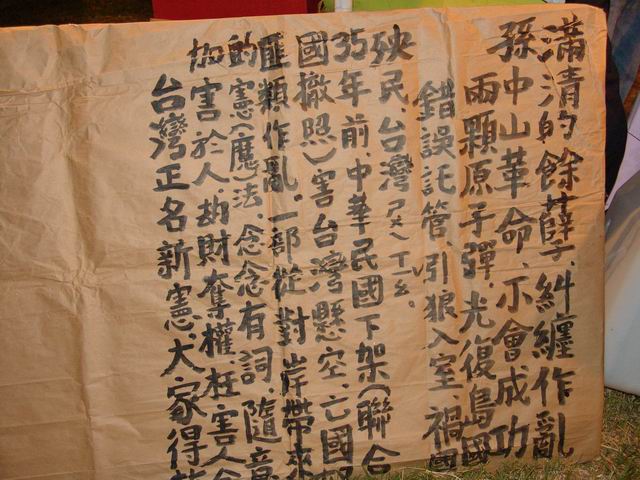 滿清的餘孽，糾纏作亂
孫中山革命，不會成功
兩顆原子彈，光復島國
錯誤託管，引狼入室，禍國
殃民，台灣
35年前，中華民國下架(聯合
國撤照)害台灣懸空，亡國
匪類作亂，一部從對岸帶來
的憲(魔)法，念念有詞，隨意
加害於人，劫財奪權，枉害人
台灣正名新憲，大家得